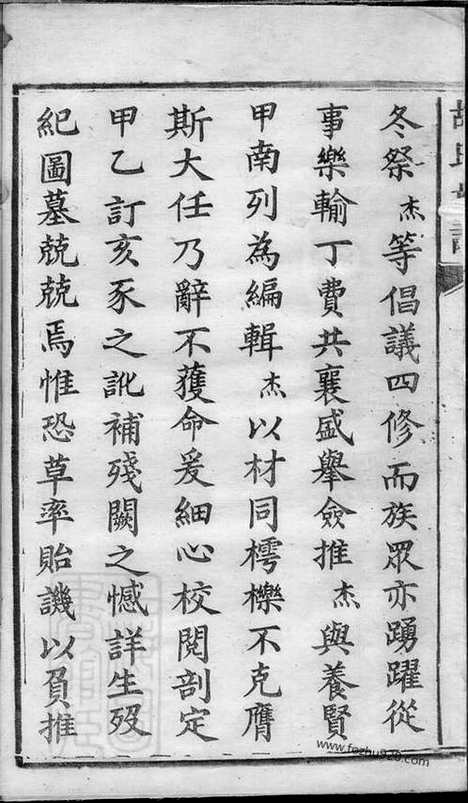 冬祭杰等倡議四修而族眾亦踴躍從
事樂輸丁費共襄盛舉僉推杰與養賢
甲南列為編輯杰以材同樗櫟不克膺
斯大任乃辭不獲命爰細心校閱剖定
甲乙訂亥豕之訛補殘闕之憾詳生歿
紀圖墓兢兢焉惟恐草率貽譏以負推
www.fozhu920.com